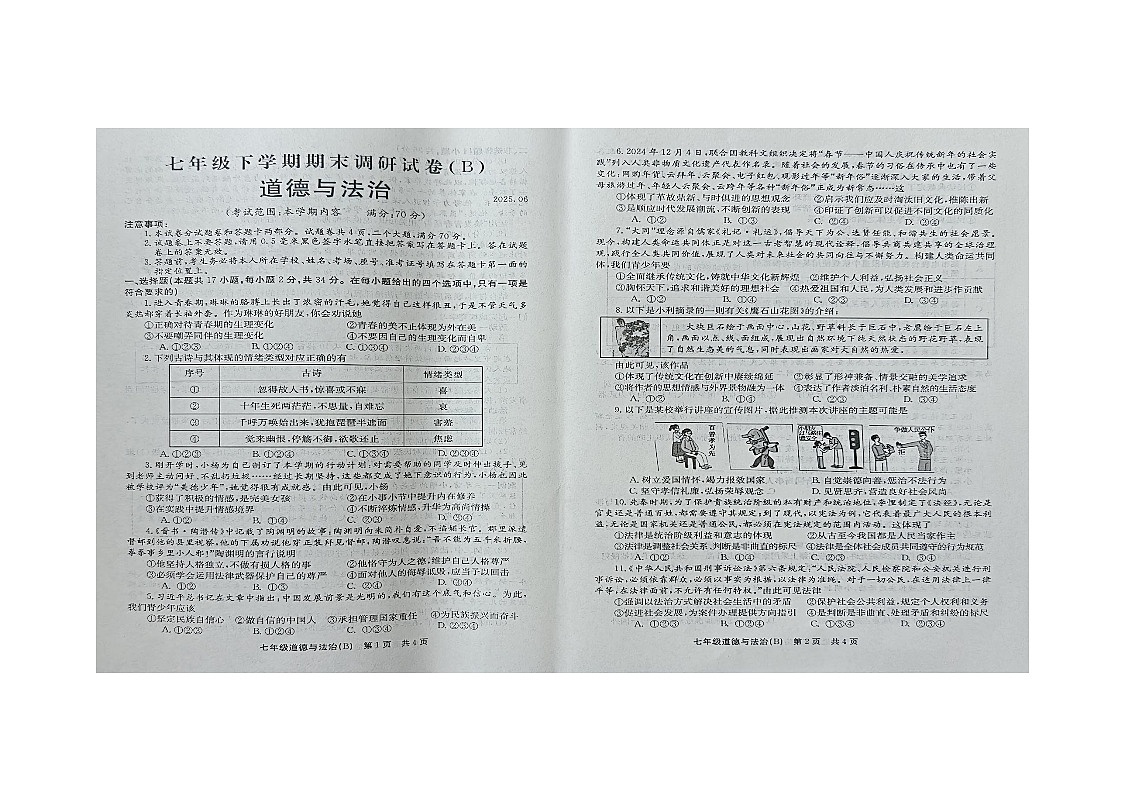 七年级下学期期末调研试卷(B)
道德与法治
2025.06
(考试范围:本学期内容 满分:70分)
注意事项:
1.本试卷分试题卷和答题卡两部分。试题卷共4页,二个大题,满分70分。
2.试题卷上不要答题,请用0.5毫米黑色签字水笔直接把答案写在答题卡上。答在试题
卷上的答案无效。
3.答题前,考生务必将本人所在学校、姓名、考场、座号、准考证号填写在答题卡第一面的
指定位置上。
一、选择题(本题共17小题,每小题2分,共34分。在每小题给出的四个选项中,只有一项是
符合要求的)
1.进入青春期,琳琳的胳膊上长出了浓密的汗毛,她觉得自己这样很丑,于是不管天气多
炎热都穿着长袖外套。作为琳琳的好朋友,你会劝说她
①正确对待青春期的生理变化 ②青春的美不止体现为外在美
③不要嘲弄同伴的生理变化 ④不要因自己的生理变化而自卑
A.①②③ B.①②④ C.①③④ D.②③④
2.下列古诗与其体现的情绪类型对应正确的有
序号 古诗 情绪类型
① 忽得故人书,惊喜或不寐 喜
② 十年生死两茫茫,不思量,自难忘 哀
③ 千呼万唤始出来,犹抱琵琶半遮面 害羞
④ 觉来幽恨,停觞不御,欲歌还止 焦虑
A.①②③ B.①②④ C.①③④ D.②③④
3.刚开学时,小杨为自己制订了本学期的行动计划:对需要帮助的同学及时伸出援手、见
到老师主动问好、不乱扔垃圾……经过长期坚持,这些都变成了她下意识的行为,小杨也因此
被学校评为“美德少年”,她觉得很有成就感。由此可见,小杨
①获得了积极的情感,是完美女孩 ②在小事小节中提升内在修养
③在实践中提升情感境界 ④不断淬炼情感,升华为高尚情操
A.①② B.①④ C.②③ D.③④
4.《晋书·陶潜传》中记载了陶渊明的故事:陶渊明向来简朴自爱,不谄媚长官。郡里派遣
督邮到他的县里视察,他的下属劝说他穿正装拜见督邮,陶潜叹息说:“吾不能为五斗米折腰,
拳拳事乡里小人邪!”陶渊明的言行说明
①他坚持人格独立,不做有损人格的事 ②他恪守为人之德,维护自己人格尊严
③必须学会运用法律武器保护自己的尊严 ④面对他人的侮辱诋毁,应当予以回击
A.①② B.①③ C.②④ D.③④
5.习近平总书记在文章中指出,中国发展前景是光明的,我们有这个底气和信心。为此,
我们青少年应该
①坚定民族自信心 ②做自信的中国人 ③承担管理国家重任 ④为民族振兴而奋斗
A.①②③ B.①②④ C.①③④ D.②③④
七年级道德与法治(B) 第1页 共4页
6.2024年12月4日,联合国教科文组织决定将“春节——中国人庆祝传统新年的社会实
践”列入人类非物质文化遗产代表作名录。随着社会的发展,春节的习俗在传承中也有了一些
变化:网购年货、云拜年、云聚会、电子红包、观影过年等“新年俗”逐渐深入大家的生活,带着父
母旅游过年、年轻人云聚会、云跨年等各种“新年俗”正成为新常态……这
①体现了革故鼎新、与时俱进的思想观念 ②启示我们应及时淘汰旧文化,推陈出新
③是顺应时代发展潮流,不断创新的表现 ④印证了创新可以促进不同文化的同质化
A.①② B.①③ C.②④ D.③④
7.“大同”理念源自儒家《礼记·礼运》,倡导天下为公、选贤任能、和谐共生的社会愿景。
现今,构建人类命运共同体正是对这一古老智慧的现代诠释,倡导共商共建共享的全球治理
观,践行全人类共同价值,展现了人类对未来社会的共同向往与不懈努力。构建人类命运共同
体,我们青少年要
①全面继承传统文化,铸就中华文化新辉煌 ②维护个人利益,弘扬社会正义
③胸怀天下,追求和谐美好的理想社会 ④热爱祖国和人民,为人类发展和进步作贡献
A.①② B.①④ C.②③ D.③④
8.以下是小利摘录的一则有关《鹰石山花图》的介绍:
大块巨石绘于画面中心,山花、野草斜长于巨石中,老鹰绘于巨石左上
角,画面以点、线、面组成,展现出自然环境下纯天然状态的野花野草,表现
了自然生态美的气息,同时表现出画家对大自然的热爱。
由此可见,该作品
①体现了传统文化在创新中赓续绵延 ②彰显了形神兼备、情景交融的美学追求
③将作者的思想情感与外界景物融为一体 ④表达了作者淡泊名利、朴素自然的生活态度
A.①② B.①④ C.②③ D.③④
9.以下是某校举行讲座的宣传图片,据此推测本次讲座的主题可能是
百善孝为先
争做人民公仆
A.树立爱国情怀,竭力报效国家 B.自觉崇德向善,惩治不法行为
C.坚守孝信礼廉,弘扬荣辱观念 D.见贤思齐,营造良好社会风尚
10.先秦时期,为了保护贵族统治阶级的私有财产和统治地位,李悝制定了《法经》,无论是
官吏还是普通百姓,都需要遵守其规定;到了现代,以宪法为例,它代表着最广大人民的根本利
益,无论是国家机关还是普通公民,都必须在宪法规定的范围内活动。这体现了
①法律是统治阶级利益和意志的体现 ②从古至今我国都是人民当家作主
③法律是调整社会关系、判断是非曲直的标尺 ④法律是全体社会成员共同遵守的行为规范
A.①② B.①④ C.②③ D.③④
11.《中华人民共和国刑事诉讼法》第六条规定:“人民法院、人民检察院和公安机关进行刑
事诉讼,必须依靠群众,必须以事实为根据,以法律为准绳。对于一切公民,在适用法律上一律
平等,在法律面前,不允许有任何特权。”由此可见法律
①强调以法治方式解决社会生活中的矛盾 ②保护社会公共利益,规定个人权利和义务
③促进社会发展,为案件办理提供方向指引 ④是判断是非曲直、处理矛盾和纠纷的标尺
A.①②③ B.①②④ C.①③④ D.②③④
七年级道德与法治(B) 第2页 共4页